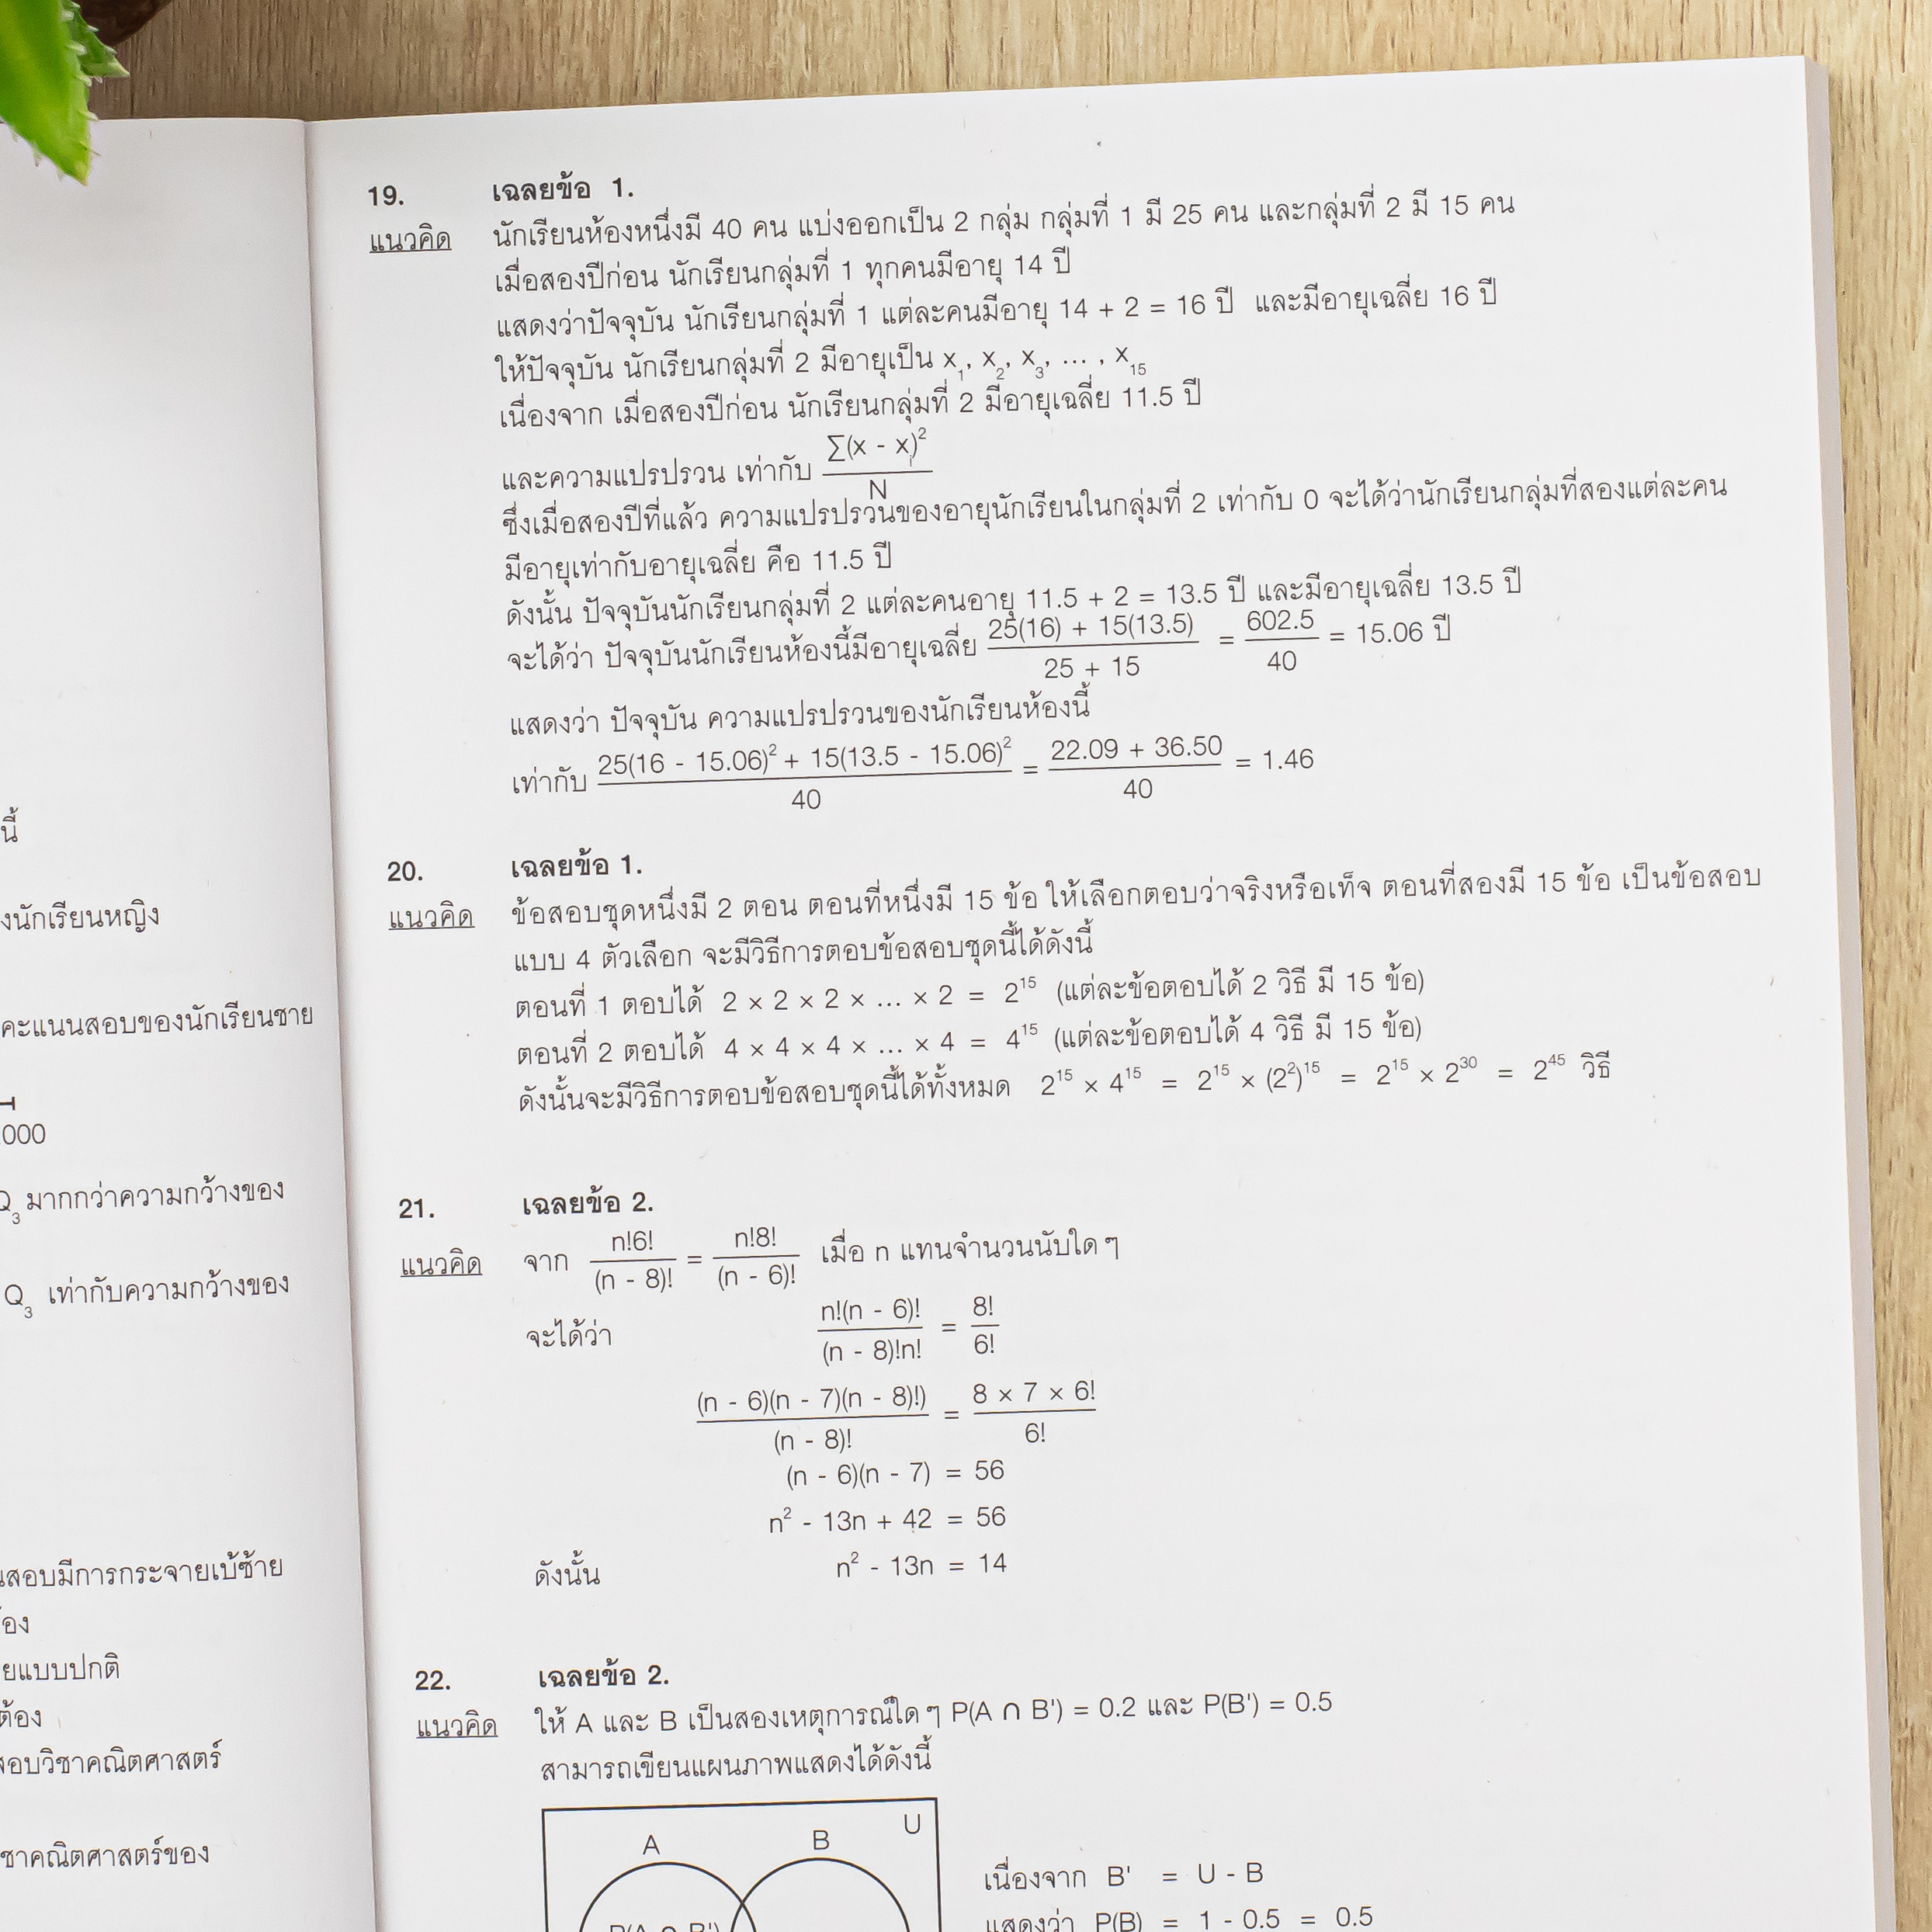 นี้
งนักเรียนหญิง
คะแนนสอบของนักเรียนชาย
000
Q₃ มากกว่าความกว้างของ
Q₃ เท่ากับความกว้างของ
สอบมีการกระจายเบ้ซ้าย
อง
ยแบบปกติ
ต้อง
สอบวิชาคณิตศาสตร์
ชาคณิตศาสตร์ของ
19. เฉลยข้อ 1.
แนวคิด นักเรียนห้องหนึ่งมี 40 คน แบ่งออกเป็น 2 กลุ่ม กลุ่มที่ 1 มี 25 คน และกลุ่มที่ 2 มี 15 คน
เมื่อสองปีก่อน นักเรียนกลุ่มที่ 1 ทุกคนมีอายุ 14 ปี
แสดงว่าปัจจุบัน นักเรียนกลุ่มที่ 1 แต่ละคนมีอายุ 14 + 2 = 16 ปี และมีอายุเฉลี่ย 16 ปี
ให้ปัจจุบัน นักเรียนกลุ่มที่ 2 มีอายุเป็น x₁, x₂, x₃, ... , x₁₅
เนื่องจาก เมื่อสองปีก่อน นักเรียนกลุ่มที่ 2 มีอายุเฉลี่ย 11.5 ปี
และความแปรปรวน เท่ากับ ∑(x - xᵢ)² / N
ซึ่งเมื่อสองปีที่แล้ว ความแปรปรวนของอายุนักเรียนในกลุ่มที่ 2 เท่ากับ 0 จะได้ว่านักเรียนกลุ่มที่สองแต่ละคน
มีอายุเท่ากับอายุเฉลี่ย คือ 11.5 ปี
ดังนั้น ปัจจุบันนักเรียนกลุ่มที่ 2 แต่ละคนอายุ 11.5 + 2 = 13.5 ปี และมีอายุเฉลี่ย 13.5 ปี
จะได้ว่า ปัจจุบันนักเรียนห้องนี้มีอายุเฉลี่ย 25(16) + 15(13.5) / 25 + 15 = 602.5 / 40 = 15.06 ปี
แสดงว่า ปัจจุบัน ความแปรปรวนของนักเรียนห้องนี้
เท่ากับ 25(16 - 15.06)² + 15(13.5 - 15.06)² / 40 = 22.09 + 36.50 / 40 = 1.46
20. เฉลยข้อ 1.
แนวคิด ข้อสอบชุดหนึ่งมี 2 ตอน ตอนที่หนึ่งมี 15 ข้อ ให้เลือกตอบว่าจริงหรือเท็จ ตอนที่สองมี 15 ข้อ เป็นข้อสอบ
แบบ 4 ตัวเลือก จะมีวิธีการตอบข้อสอบชุดนี้ได้ดังนี้
ตอนที่ 1 ตอบได้ 2 × 2 × 2 × ... × 2 = 2¹⁵ (แต่ละข้อตอบได้ 2 วิธี มี 15 ข้อ)
ตอนที่ 2 ตอบได้ 4 × 4 × 4 × ... × 4 = 4¹⁵ (แต่ละข้อตอบได้ 4 วิธี มี 15 ข้อ)
ดังนั้นจะมีวิธีการตอบข้อสอบชุดนี้ได้ทั้งหมด 2¹⁵ × 4¹⁵ = 2¹⁵ × (2²)¹⁵ = 2¹⁵ × 2³⁰ = 2⁴⁵ วิธี
21. เฉลยข้อ 2.
แนวคิด จาก n!6! / (n - 8)! = n!8! / (n - 6)! เมื่อ n แทนจำนวนนับใด ๆ
จะได้ว่า n!(n - 6)! / (n - 8)!n! = 8! / 6!
(n - 6)(n - 7)(n - 8)!) / (n - 8)! = 8 × 7 × 6! / 6!
(n - 6)(n - 7) = 56
n² - 13n + 42 = 56
ดังนั้น n² - 13n = 14
22. เฉลยข้อ 2.
แนวคิด ให้ A และ B เป็นสองเหตุการณ์ใด ๆ P(A ∩ B') = 0.2 และ P(B') = 0.5
สามารถเขียนแผนภาพแสดงได้ดังนี้
U
A B
P(A ∩ B')
เนื่องจาก B' = U - B
แสดงว่า P(B) = 1 - 0.5 = 0.5